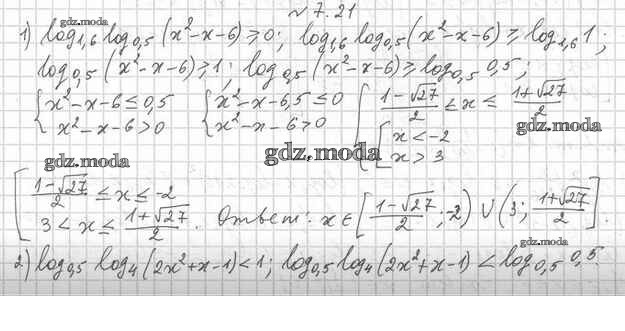 № 7.21
gdz.moda
1) log₁,₆ log₀,₅ (x²-x-6) ≥ 0; log₁,₆ log₀,₅ (x²-x-6) ≥ log₁,₆ 1;
log₀,₅ (x²-x-6) ≥ 1; log₀,₅ (x²-x-6) ≥ log₀,₅ 0,5;
{ x²-x-6 ≤ 0,5 { x²-x-6,5 ≤ 0 { (1-√27)/2 ≤ x ≤ (1+√27)/2
x²-x-6 > 0 x²-x-6 > 0 [ x < -2
x > 3
gdz.moda
gdz.moda
gdz.moda
[ (1-√27)/2 ≤ x ≤ -2
3 < x ≤ (1+√27)/2. Ответ: x ∈ [(1-√27)/2; -2) ∪ (3; (1+√27)/2].
gdz.moda
gdz.moda
2) log₀,₅ log₄ (2x²+x-1) < 1; log₀,₅ log₄ (2x²+x-1) < log₀,₅ 0,5.